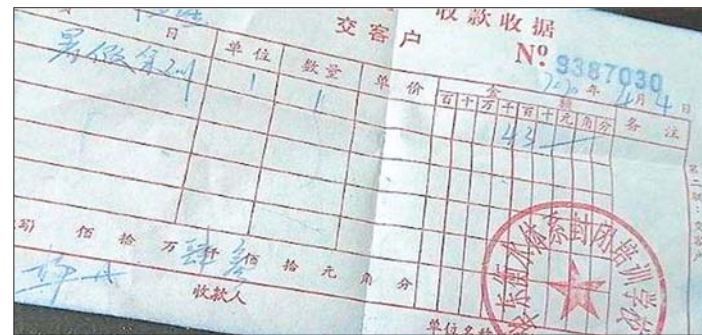 收款收据
交客户
№ 9387030
2020年4月4日
日 单位 数量 单价 金额 备注
百十万千百十元角分
暑假集训 1 1 43
佰 拾 万 肆仟 叁佰 拾 元 角 分
收款人
单位名称
第二联：交客户
衡水体系封闭培训学校